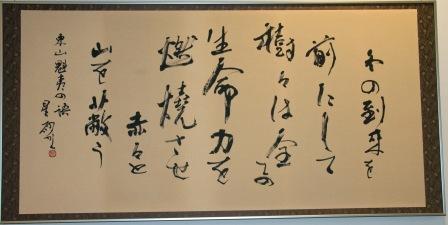 冬の到来を
前にして
樹々は全
生命力を
燃焼させ
赤々と
山を蔽う
東山魁夷の語
星